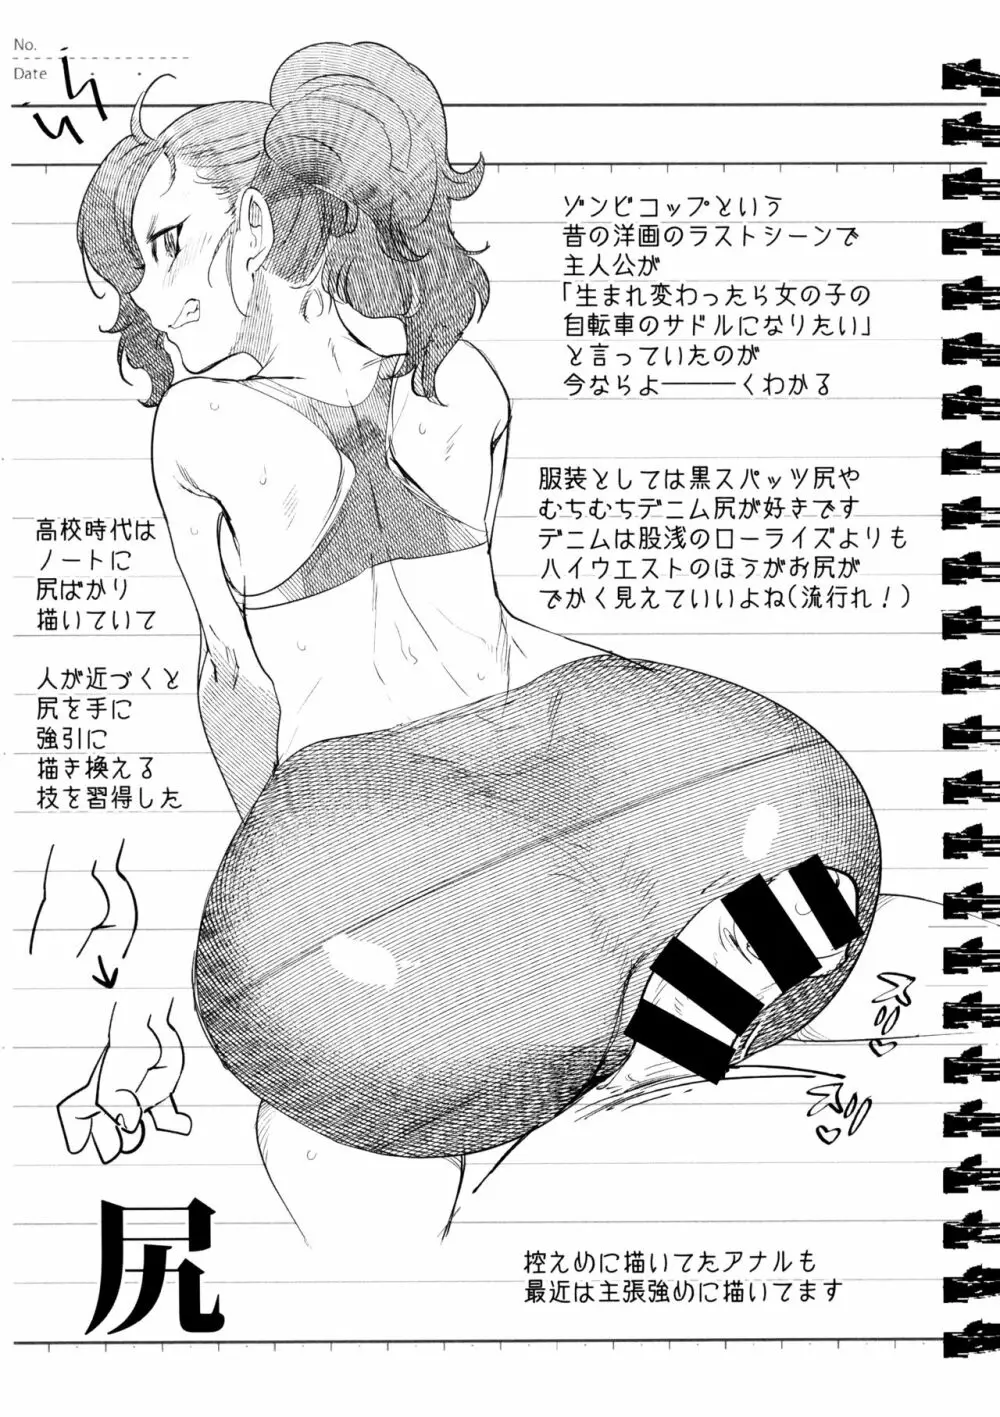 No.
Date
ゾンビコップという
昔の洋画のラストシーンで
主人公が
「生まれ変わったら女の子の
自転車のサドルになりたい」
と言っていたのが
今ならよ―――くわかる
服装としては黒スパッツ尻や
むちむちデニム尻が好きです
デニムは股浅のローライズよりも
ハイウエストのほうがお尻が
でかく見えていいよね(流行れ!)
高校時代は
ノートに
尻ばかり
描いていて
人が近づくと
尻を手に
強引に
描き換える
技を習得した
尻
控えめに描いてたアナルも
最近は主張強めに描いてます